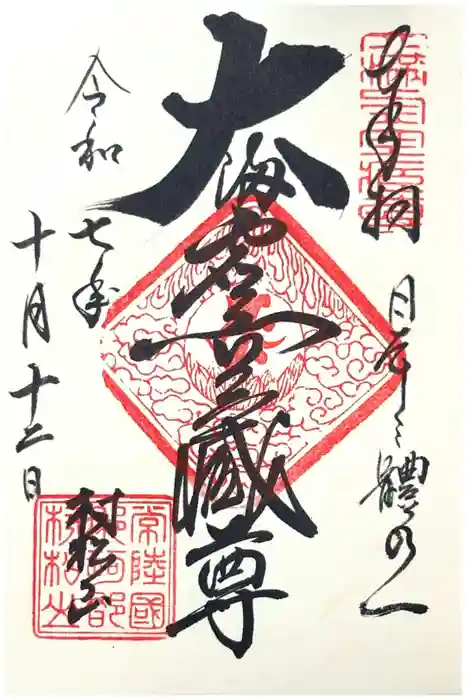 奉拝
日本三體の一
大満虚空蔵尊
令和七年
十月十二日
村松山
常陸國
那珂郡
村松山